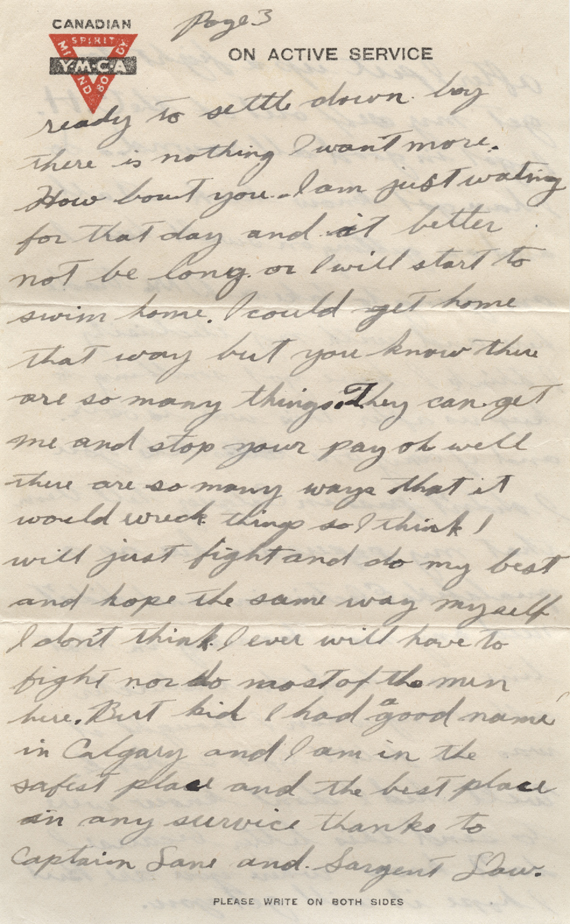 Page 3
CANADIAN
SPIRIT
MIND
BODY
Y·M·C·A
ON ACTIVE SERVICE
ready to settle down. boy
there is nothing I want more.
How bout you. I am just wating
for that day and it better
not be long. or I will start to
swim home. I could get home
that way but you know there
are so many things. They can get
me and stop your pay oh well
there are so many ways that it
would wreck things so I think I
will just fight and do my best
and hope the same way myself
I don't think I ever will have to
fight nor do most of the men
here. But kid I had a good name
in Calgary and I am in the
safest place and the best place
in any survice thanks to
Captain Lane and Sargent Slaw.
PLEASE WRITE ON BOTH SIDES